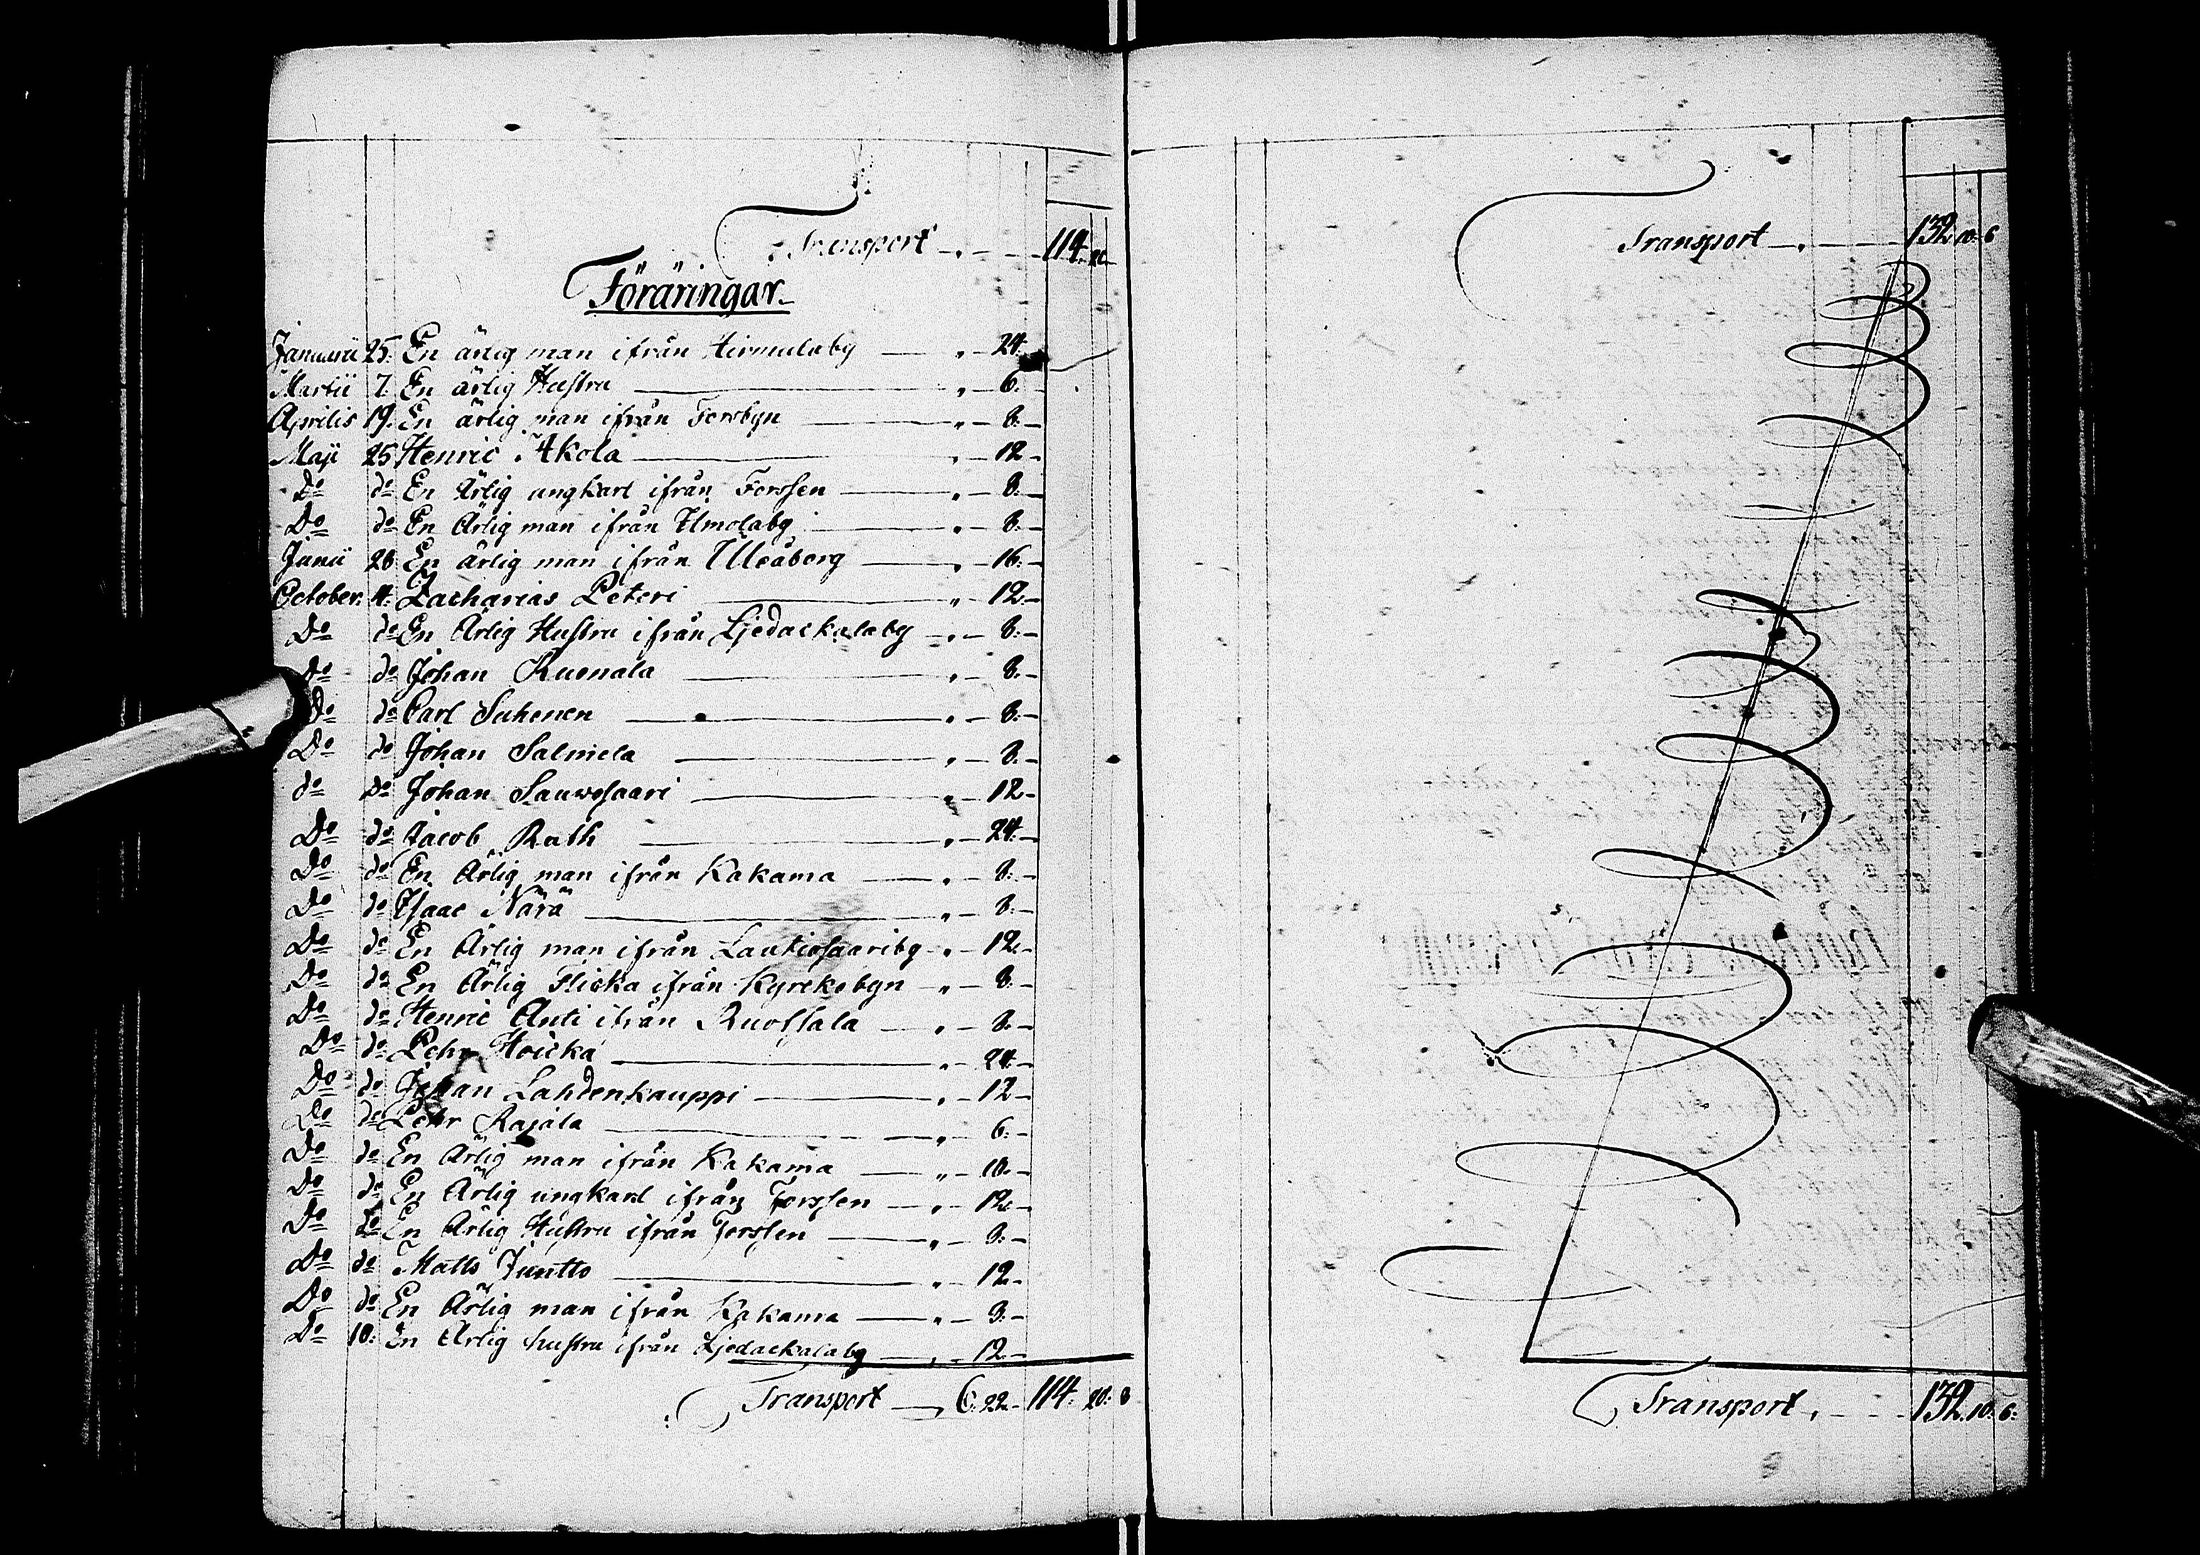 Transport 114. 20
Föräringar.
Januarii 25. En ärlig man ifrån Airmulaby " 24.
Martii 7. En ärlig Hustru " 6.
Aprilis 19. En ärlig man ifrån Forsbyn " 8.
Maji 25 Henric Akola " 12
Do do En Ärlig ungkarl ifrån Forssen " 8.
Do do En Ärlig man ifrån Ulmolaby " 8.
Junii 28. En ärlig man ifrån Uleåborg " 16.
October. 4. Zacharias Peteri " 12.
Do do En Ärlig Hustru ifrån Ljedackalaby " 8.
Do do Johan Kuonala " 8.
Do do Carl Suhonen " 8.
Do do Johan Salmela " 8.
do Do Johan Sauwosaari " 12
Do do Jacob Rath " 24.
Do do En Ärlig man ifrån Kakama " 8.
Do do Isaac Närä " 8.
Do do En Ärlig man ifrån Lautiosaariby " 12.
Do do En Ärlig Flicka ifrån Kyrckobyn " 8.
Do do Henric Anti ifrån Ruossala " 8.
Do do Pehr Hoicka " 24.
Do do Johan Lahdenkauppi " 12
Do do Pehr Rajala " 6.
Do do En Ärlig man ifrån Kakama " 10.
Do do En Ärlig ungkarl ifrån Forssen " 12.
Do do En Ärlig Hustru ifrån Forssen " 8.
Do do Matts Juntto " 12.
Do do En Ärlig man ifrån Kakama " 8.
Do 10: En Ärlig hustru ifrån Ljedackalaby " 12.
Transport 6. 22. 114. 20. 8
Transport 132. 10. 6
Transport 132. 10. 6.